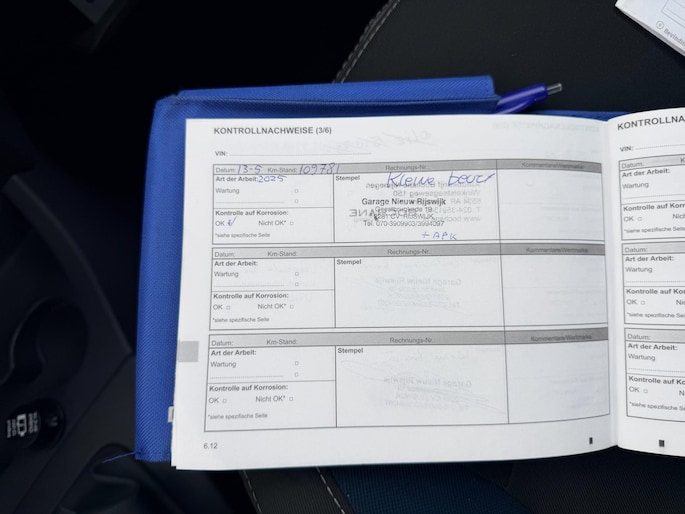 KONTROLLNACHWEISE (3/6)
VIN:
Datum: 13-5 Km-Stand: 109781 Rechnungs-Nr.
Art der Arbeit: 2025 Stempel Kleine beurt
Wartung
Garage Nieuw Rijswijk
Kontrolle auf Korrosion:
OK Nicht OK*
Tel. 070-3909903/3994097
*siehe spezifische Seite
+ APK
Datum: Km-Stand: Rechnungs-Nr. Kommentare/Werkstätte
Art der Arbeit: Stempel
Wartung
Kontrolle auf Korrosion:
OK Nicht OK*
*siehe spezifische Seite
Datum: Km-Stand: Rechnungs-Nr. Kommentare/Werkstätte
Art der Arbeit: Stempel
Wartung
Kontrolle auf Korrosion:
OK Nicht OK*
*siehe spezifische Seite
6.12
KONTROLLNA
VIN:
Datum:
Art der Arbeit:
Wartung
Kontrolle auf Ko
OK
*siehe spezifisch
Datum:
Art der Arbeit:
Wartung
Kontrolle auf Ko
OK
*siehe spezifisch
Datum:
Art der Arbeit:
Wartung
Kontrolle auf Ko
OK
*siehe spezifisch